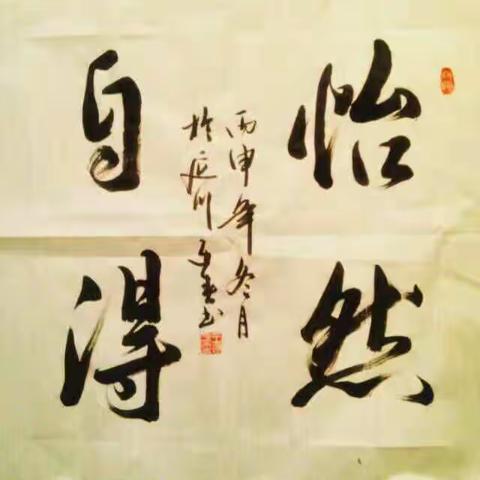 怡然
自得
丙申年冬月
於 川 书